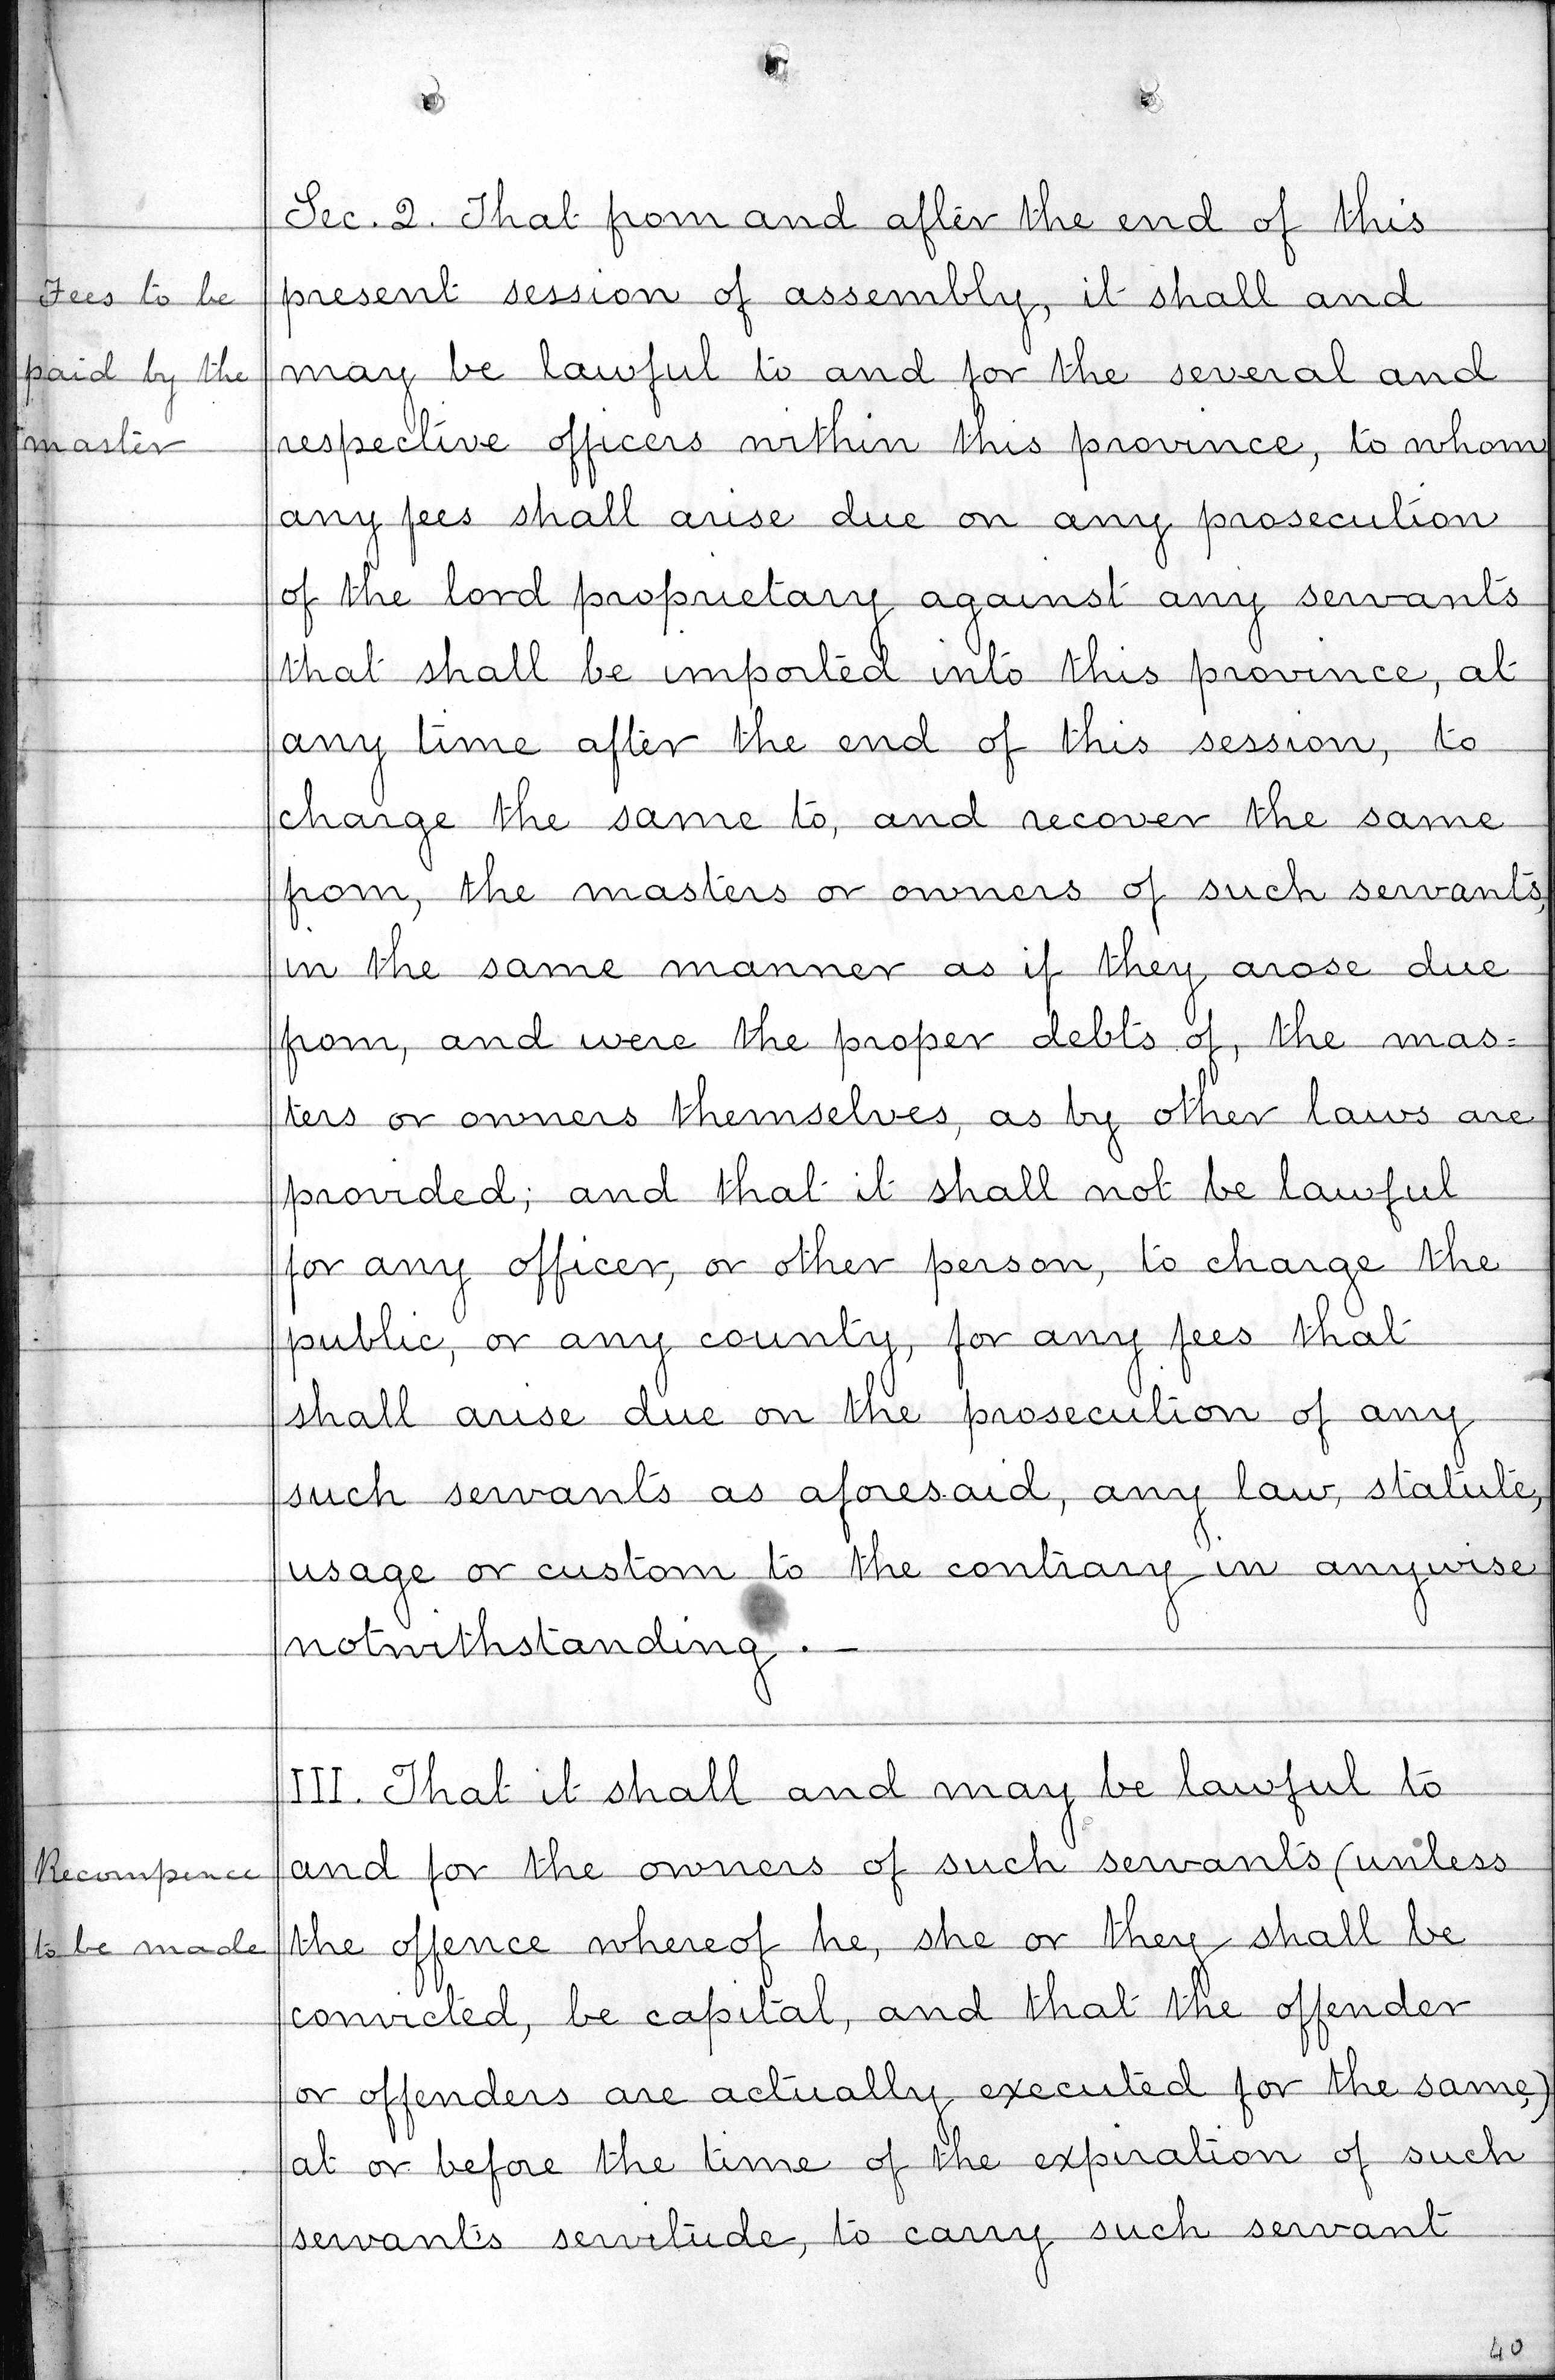 Sec. 2. That from and after the end of this
Fees to be
present session of assembly, it shall and
paid by the
may be lawful to and for the several and
master
respective officers within this province, to whom
any fees shall arise due on any prosecution
of the lord proprietary against any servants
that shall be imported into this province, at
any time after the end of this session, to
charge the same to, and recover the same
from, the masters or owners of such servants,
in the same manner as if they arose due
from, and were the proper debts of, the mas=
ters or owners themselves, as by other laws are
provided; and that it shall not be lawful
for any officer, or other person, to charge the
public, or any county, for any fees that
shall arise due on the prosecution of any
such servants as aforesaid, any law, statute,
usage or custom to the contrary in anywise
notwithstanding. —
III. That it shall and may be lawful to
Recompence
and for the owners of such servants (unless
to be made
the offence whereof he, she or they shall be
convicted, be capital, and that the offender
or offenders are actually executed for the same,)
at or before the time of the expiration of such
servant's servitude, to carry such servant
40